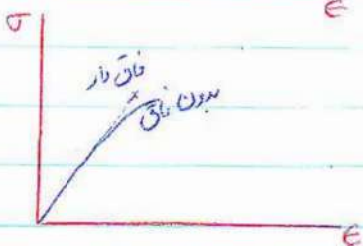 ϵ
σ
فاق دار
بدون فاق
ϵ